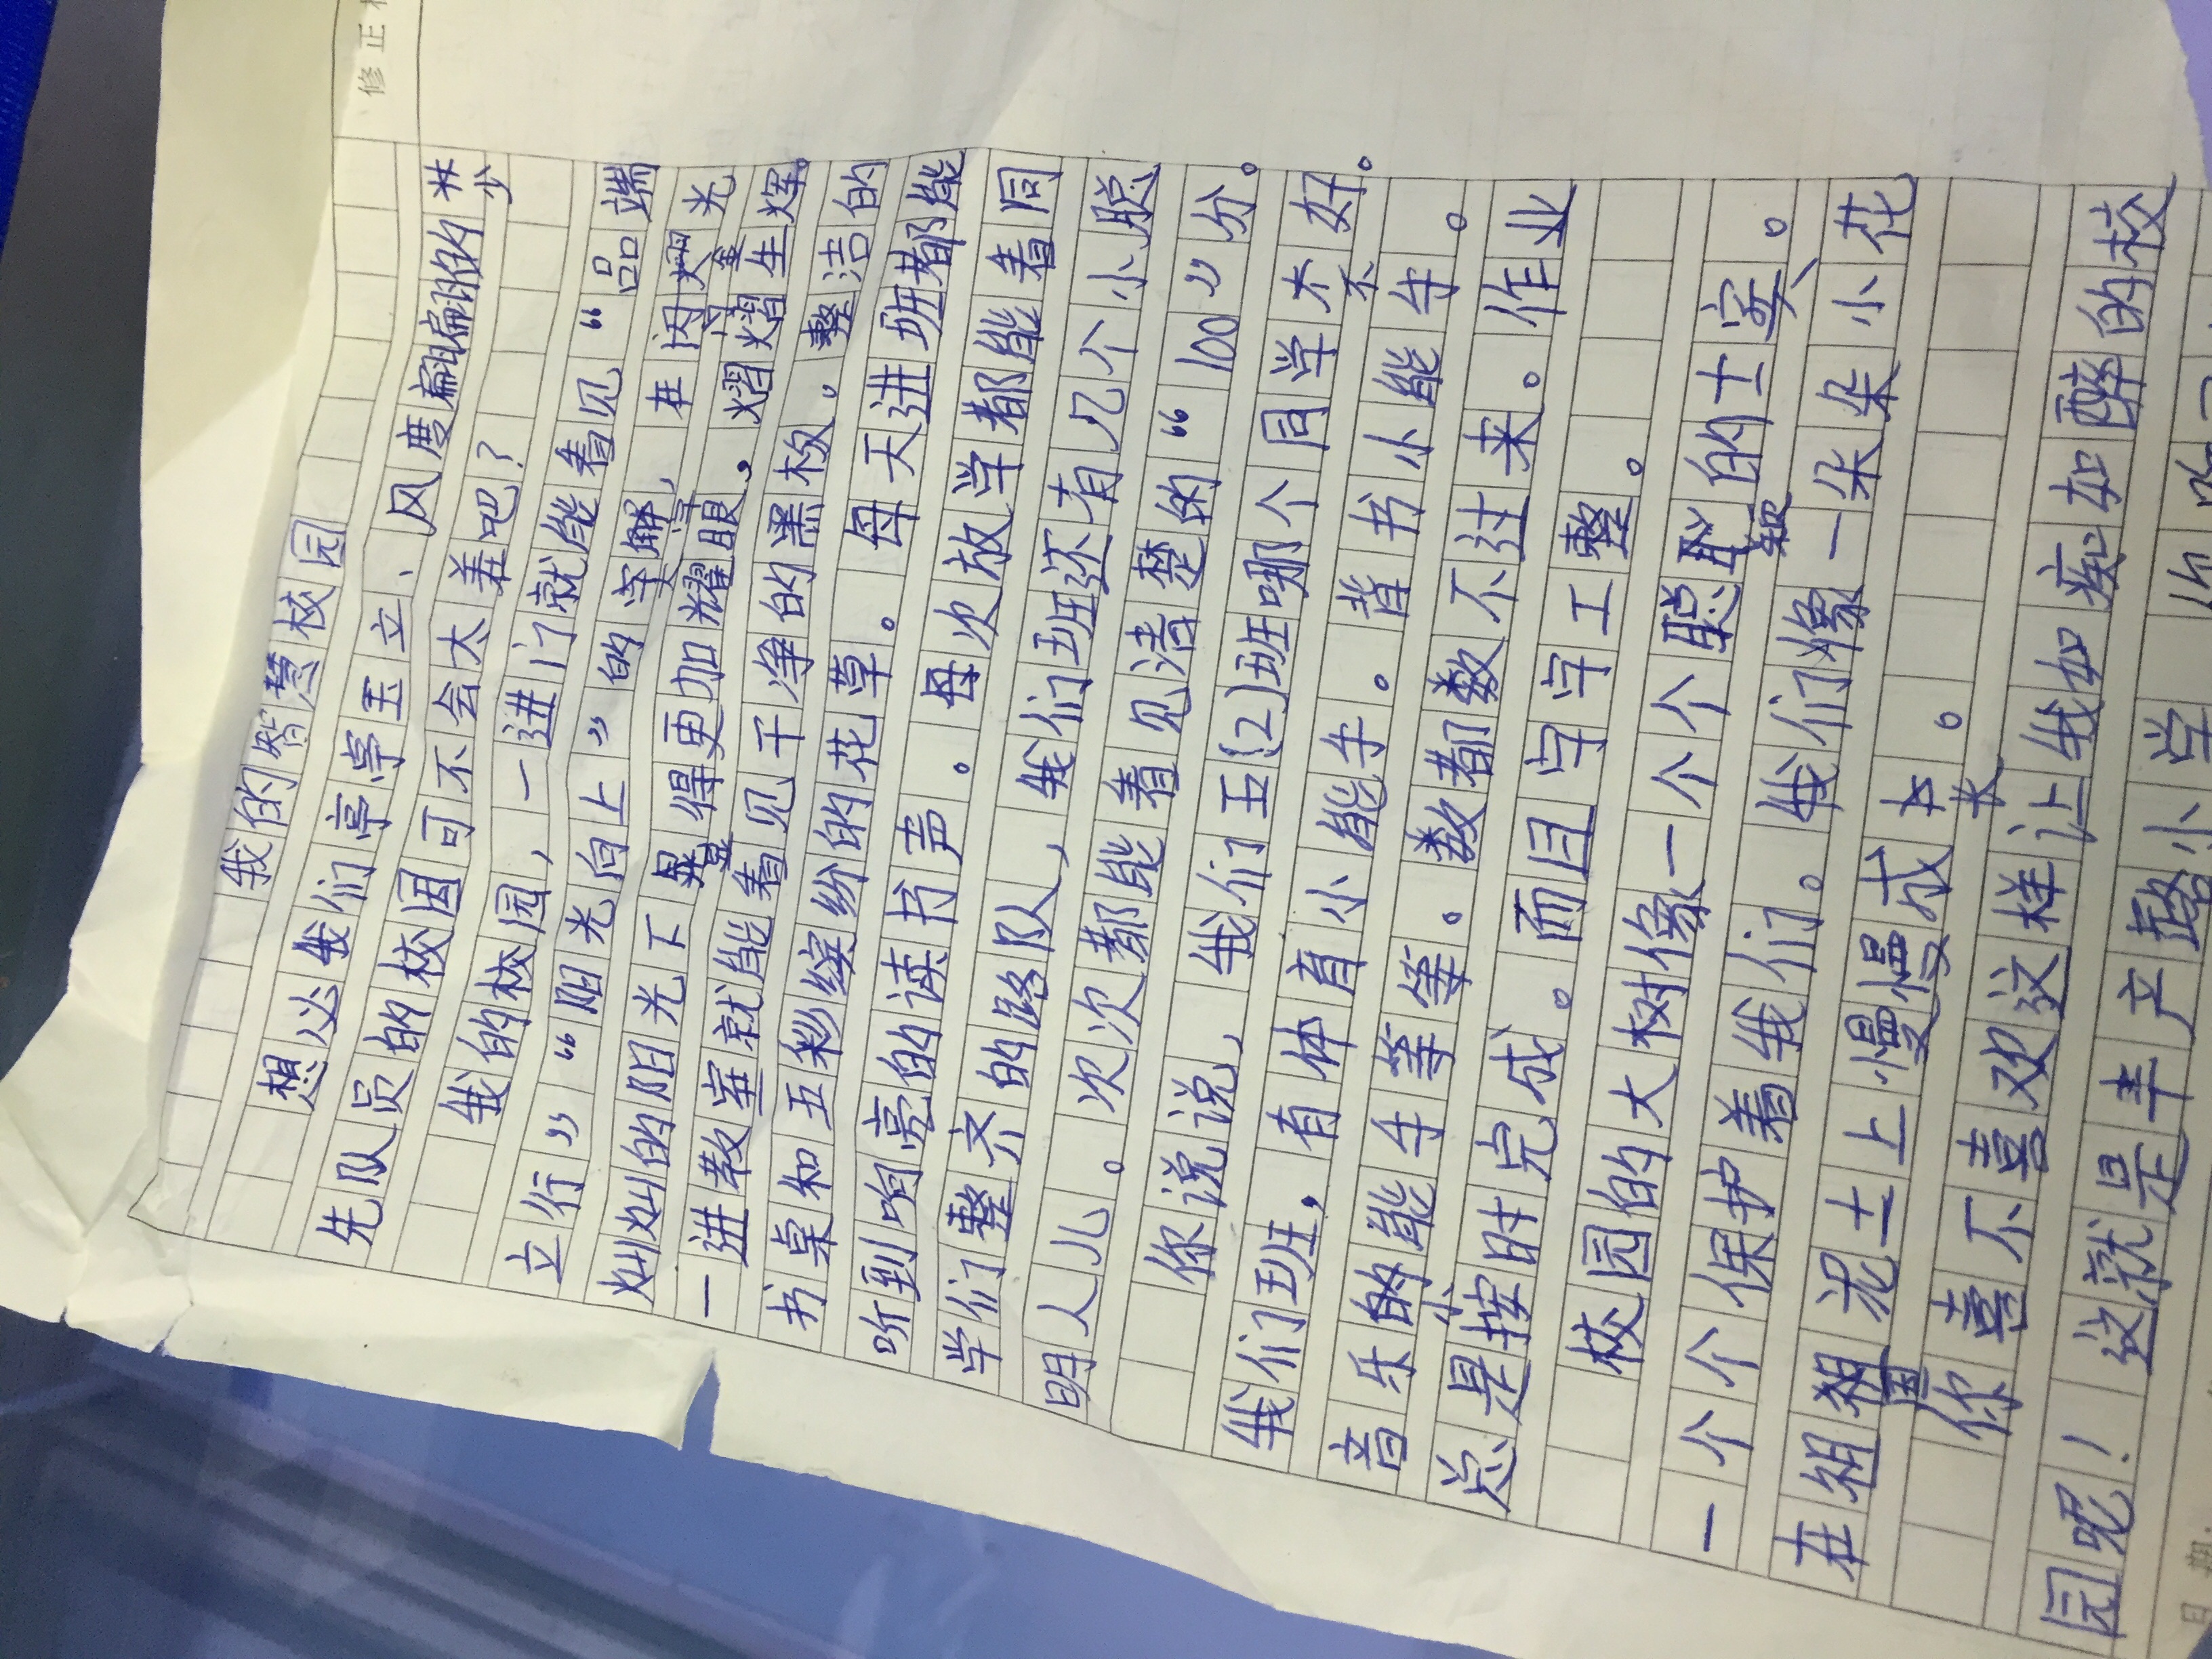 修正
我的智慧校园
想必我们亭亭玉立、风度翩翩的少
先队员的校园可不会太差吧?
我的校园,一进门就能看见“品端
立行”“阳光向上”的字,在闪金光
灿灿的阳光下显得更加耀眼,熠熠生辉。
一进教室就能看见干净的黑板。整洁的
书桌和五彩缤纷的花草。每天进班都能
听到响亮的读书声。每次放学都能看同
学们整齐的路队,我们班还有几个小聪
明人儿。次次都能看见清楚的“100”分。
你说说,我们五(2)班哪个同学不好。
我们班,有体育小能手。背书小能手。
音乐的小能手等等。数都数不过来。作业
总是按时完成。而且字字工整。
校园的大树像一个个聪的士实。
一个个保护着我们。我们像一朵朵小花
在祖国泥土上慢慢成长。
你喜不喜欢这样让我如痴如醉的校
园呢!这就是丰产路小学
日期: